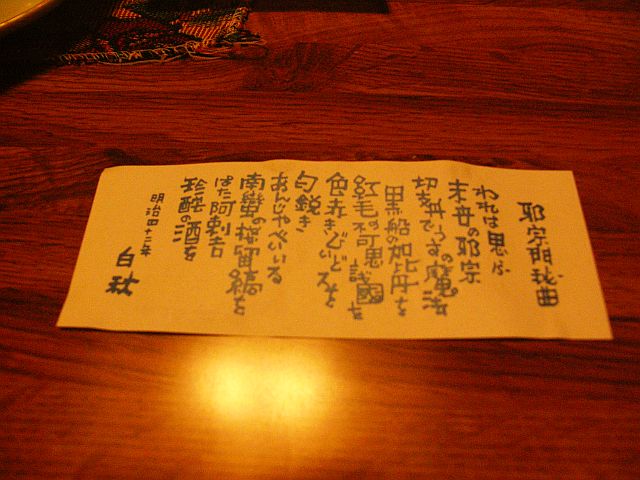 耶宗門秘曲
われは思ふ
末世の邪宗
切支丹でうすの魔法
黒船の加比丹を
紅毛の不可思議國を
色赤きびいどろを
匂鋭き
あんじゃべいいる
南蛮の桟留縞を
はた阿刺吉
珍酡の酒を
明治四十二年
白秋